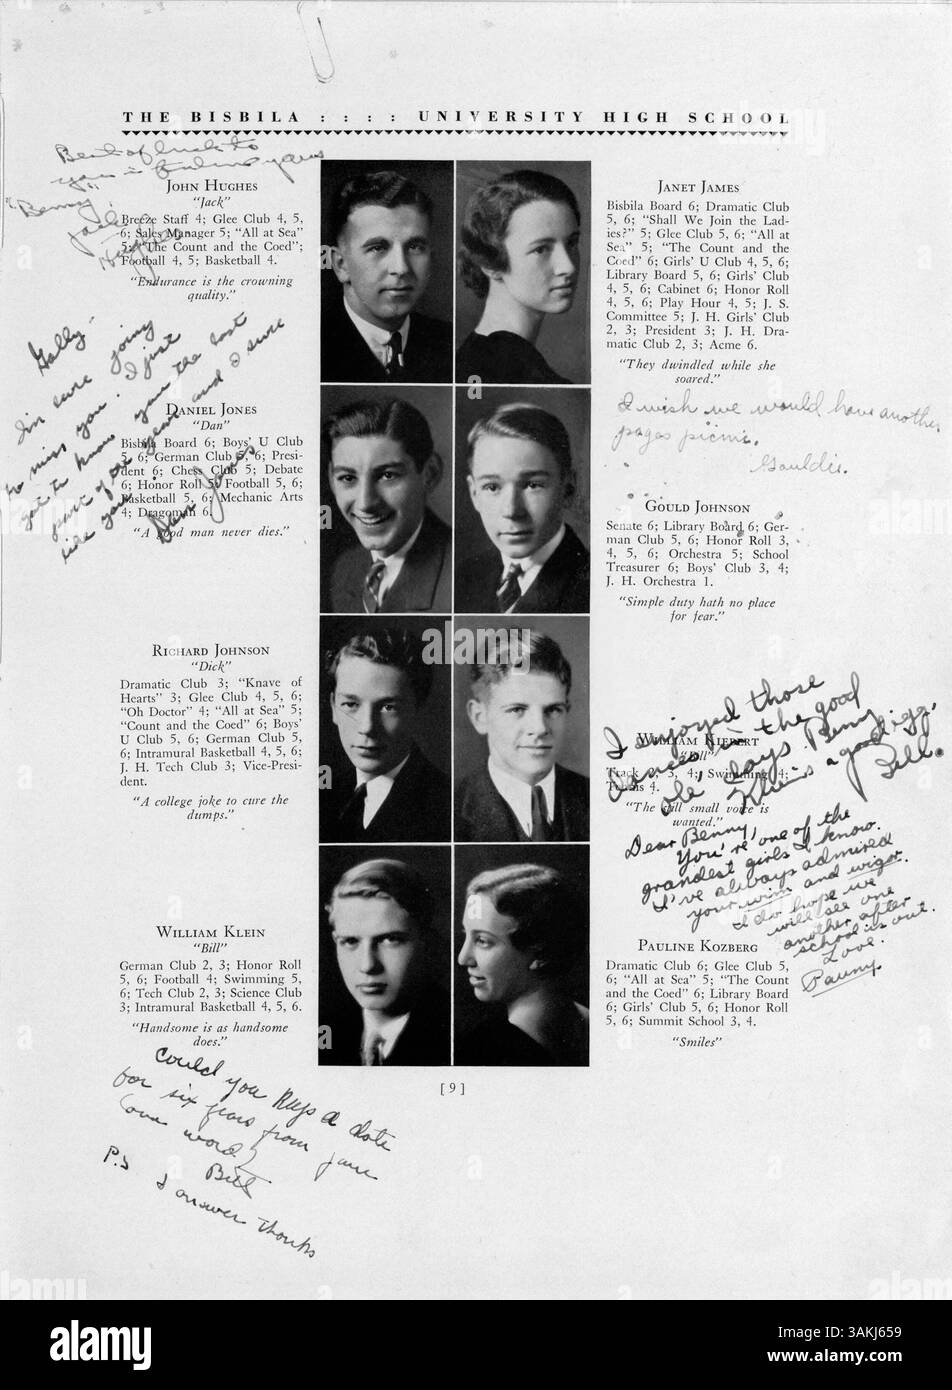 THE BISBILA : : : : UNIVERSITY HIGH SCHOOL
Best of luck to
you in future years
"Benny"
Jack
Hughes
JOHN HUGHES
"Jack"
Breeze Staff 4; Glee Club 4, 5,
6; Sales Manager 5; "All at Sea"
5; "The Count and the Coed";
Football 4, 5; Basketball 4.
"Endurance is the crowning
quality."
Golly-
I'm sure going
to miss you. I just
got to know you the last
part of the year and I sure
like you.
Dan Jones
DANIEL JONES
"Dan"
Bisbila Board 6; Boys' U Club
5, 6; German Club 5, 6; Presi-
dent 6; Chess Club 5; Debate
6; Honor Roll 5; Football 5, 6;
Basketball 5, 6; Mechanic Arts
4; Dragoman 6.
"A good man never dies."
RICHARD JOHNSON
"Dick"
Dramatic Club 3; "Knave of
Hearts" 3; Glee Club 4, 5, 6;
"Oh Doctor" 4; "All at Sea" 5;
"Count and the Coed" 6; Boys'
U Club 5, 6; German Club 5,
6; Intramural Basketball 4, 5, 6;
J. H. Tech Club 3; Vice-Presi-
dent.
"A college joke to cure the
dumps."
WILLIAM KLEIN
"Bill"
German Club 2, 3; Honor Roll
5, 6; Football 4; Swimming 5,
6; Tech Club 2, 3; Science Club
3; Intramural Basketball 4, 5, 6.
"Handsome is as handsome
does."
Could you keep a date
for six years from June
(one word)
Bill
P.S I answer thanks
JANET JAMES
Bisbila Board 6; Dramatic Club
5, 6; "Shall We Join the Lad-
ies?" 5; Glee Club 5, 6; "All at
Sea" 5; "The Count and the
Coed" 6; Girls' U Club 4, 5, 6;
Library Board 5, 6; Girls' Club
4, 5, 6; Cabinet 6; Honor Roll
4, 5, 6; Play Hour 4, 5; J. S.
Committee 5; J. H. Girls' Club
2, 3; President 3; J. H. Dra-
matic Club 2, 3; Acme 6.
"They dwindled while she
soared."
I wish we would have another
pages picnic.
Gouldie.
GOULD JOHNSON
Senate 6; Library Board 6; Ger-
man Club 5, 6; Honor Roll 3,
4, 5, 6; Orchestra 5; School
Treasurer 6; Boys' Club 3, 4;
J. H. Orchestra 1.
"Simple duty hath no place
for fear."
I enjoyed those
dances in the good
ole' days Benny
is a good
Bill.
WILLIAM KIEPERT
"Bill"
Track 2, 3, 4; Swimming 4;
Tennis 4.
"The still small voice is
wanted."
Dear Benny,
You're one of the
grandest girls I know.
I've always admired
your vim and vigor.
I do hope we
will see one
another after
school is out.
Love.
Pauny.
PAULINE KOZBERG
Dramatic Club 6; Glee Club 5,
6; "All at Sea" 5; "The Count
and the Coed" 6; Library Board
6; Girls' Club 5, 6; Honor Roll
5, 6; Summit School 3, 4.
"Smiles"
[9]
alamy
Image ID: 3AKJ659
www.alamy.com